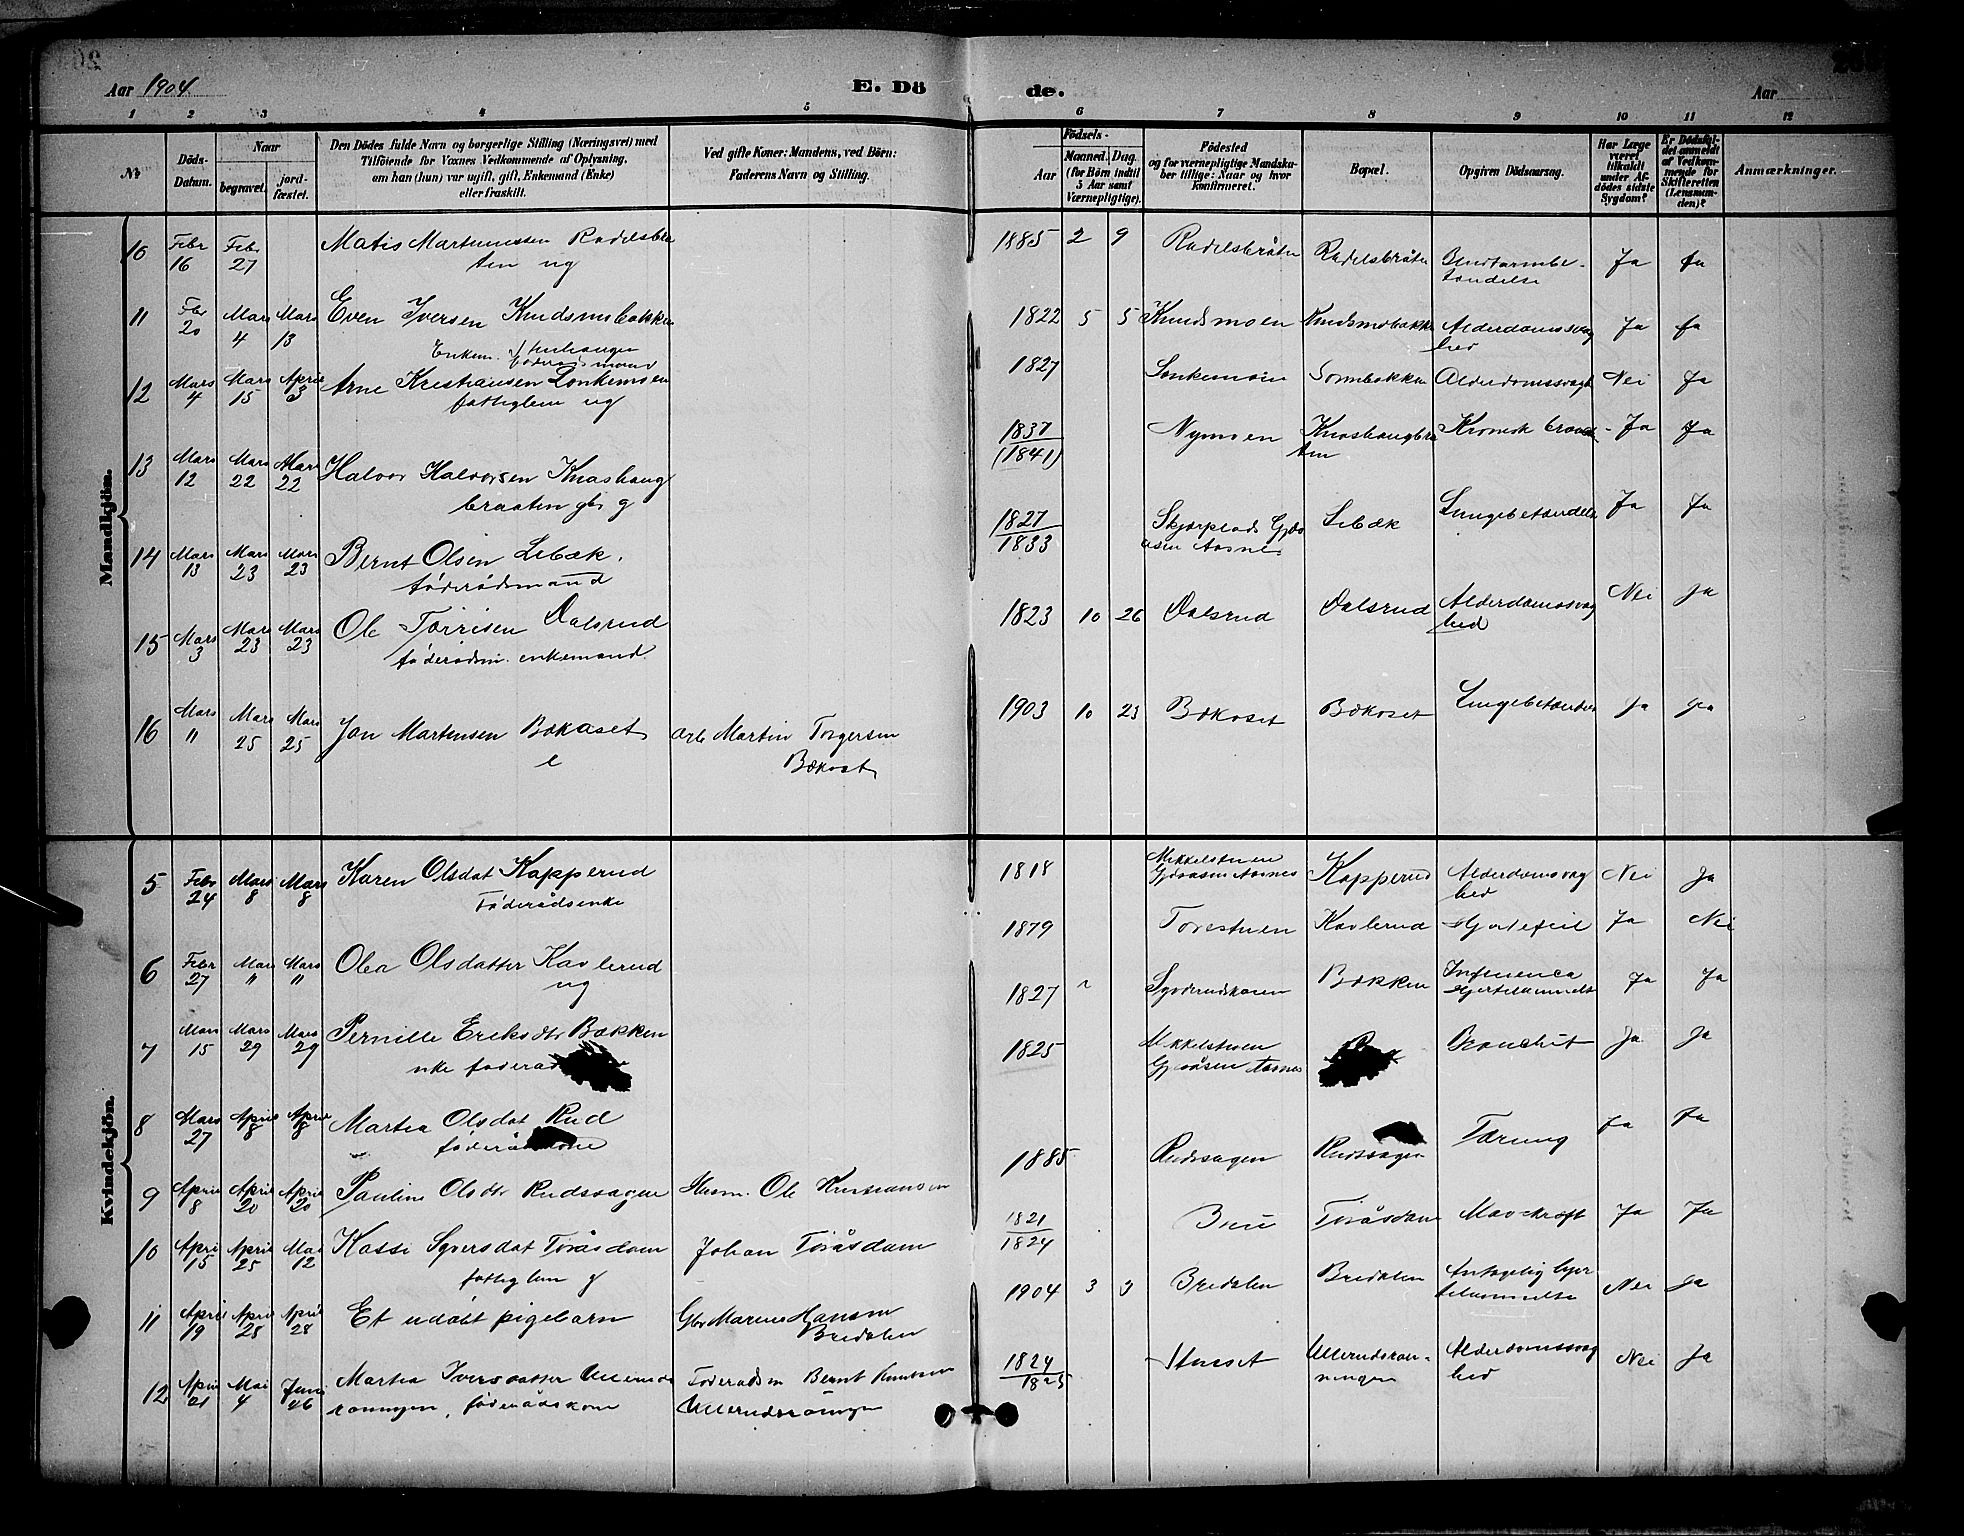 Aar 1904
E. Dö
de.
Aar
1 2 3 4 5 6 7 8 9 10 11 12
No
Döds-
Datum.
Naar
begravet.
jord-
fæstet.
Den Dödes fulde Navn og borgerlige Stilling (Næringsvei) med
Tilföiende for Voxnes Vedkommende af Oplysning,
om han (hun) var ugift, gift, Enkemand (Enke)
eller fraskilt.
Ved gifte Koner: Mandens, ved Börn:
Faderens Navn og Stilling.
Födsels-
Aar
Maaned. Dag.
(for Börn indtil
5 Aar samt
Værnepligtige).
Födested
og for værnepligtige Mandska-
ber tillige: Naar og hvor
konfirmeret.
Bopæl.
Opgiven Dödsaarsag.
Har Læge
været
tilkaldt
under Af-
dödes sidste
Sygdom?
Er Dödsfal-
det anmeldt
af Vedkom-
mende for
Skifteretten
(Lensman-
den)?
Anmærkninger.
Mandkjön.
10 Febr 16 Febr 27 Matis Martinussen Radelsbra
ten ug
1885 2 9 Radelsbråten Radelsbråten Blindtarmbe-
tændelse Ja Ja
11 Febr 20 Mars 4 Mars 13 Even Iversen Knudsmobakken
Enkem. föderådsmand
1822 5 5 Knudsmoen Knudsmobakke Alderdomssvag
hed Ja Ja
12 Mars 4 Mars 15 April 3 Arne Kristiansen Lonkemoen
fattiglem ug
1827 Lonkemoen Alderdomssvagh Nei Ja
13 Mars 12 Mars 22 Mars 22 Halvor Halvorsen Knashaug
braaten gbr g
1837
(1841) Nymoen Knashaugbra
ten Kronisk bronch - Ja Ja
14 Mars 13 Mars 23 Mars 23 Bernt Olsen Libæk.
föderådsmand
1827
1833 Skjærplads Gjø
åsen Aasnes Libæk Lungebetændels Ja Ja
15 Mars 3 Mars 23 Mars 23 Ole Torrisen Dalsrud
föderadsm. enkemand
1823 10 26 Dalsrud Dalsrud Alderdomssvag
hed Nei Ja
16 Mars " Mars 25 Mars 25 Jon Martinsen Bækaset
e
Arb Martin Torgersen
Bækaset
1903 10 23 Bækaset Bækaset Lungebetændels Ja Ja
Kvindekjön.
5 Febr 24 Mars 8 Mars 8 Karen Olsdat Kapperud
Föderådsenke
1818 Mikkelstuen
Gjøåsen Aasnes Kapperud Alderdomsvag
hed Nei Ja
6 Febr 27 Mars " Mars " Olea Olsdatter Kavlerud
ug
1879 Torestuen Kavlerud Hjertefeil Ja Nei
7 Mars 15 Mars 29 Mars 29 Pernille Eriksdtr Bækken
1827 Bækken Influenca
Hjertelammels Ja Ja
8 Mars 27 April 8 April 8 Martea Olsdat Rud
1825 Mikkelstuen
Gjøåsen Aasnes Bronchit Ja Ja
9 April 8 April 20 April 20 Pauline Olsdtr Rudssagen
Husm. Ole Kristiansen
1885 Rudssagen Rudssagen Tæring Ja Ja
10 April 15 April 25 Mai 12 Kassi Syversdat Toråsdam
fattiglem g
Johan Toråsdam
1821
1824 Toråsdam Mavekræft Ja Ja
11 April 19 April 28 April 28 Et udöbt pigebarn
Gbr Marius Hansen
Bredalen
1904 3 Bredalen Bredalen Antagelig hjer
telammelse Nei Ja
12 April 21 Mai 4 Juni 26 Martea Iversdatter Ullerud
röningen, föderådskone
Föderadsm Bernt Knutsen
Ullerudsröningen
1824
1825 Ullerudsröi-
ningen Alderdomssvag
hed Nei Ja